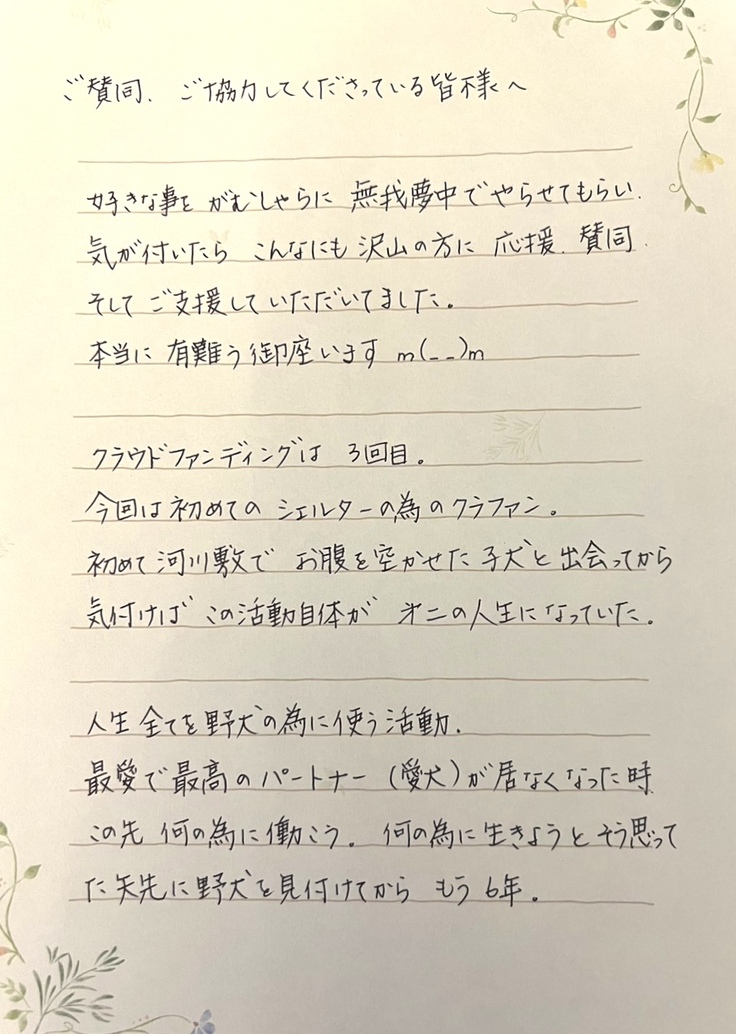 ご賛同、ご協力してくださっている皆様へ
好きな事を がむしゃらに 無我夢中で やらせてもらい、
気が付いたら こんなにも 沢山の方に 応援、賛同、
そして ご支援して いただいてました。
本当に 有難う御座います m(_ _)m
クラウドファンディングは 3回目。
今回は初めての シェルターの為のクラファン。
初めて河川敷で お腹を空かせた 子犬と出会ってから
気付けば この活動自体が 才二の人生になっていた。
人生 全てを野犬の為に使う活動、
最愛で最高のパートナー (愛犬)が居なくなった時、
この先 何の為に働こう。 何の為に生きようと そう思って
た矢先に野犬を見付けてから もう 6年。